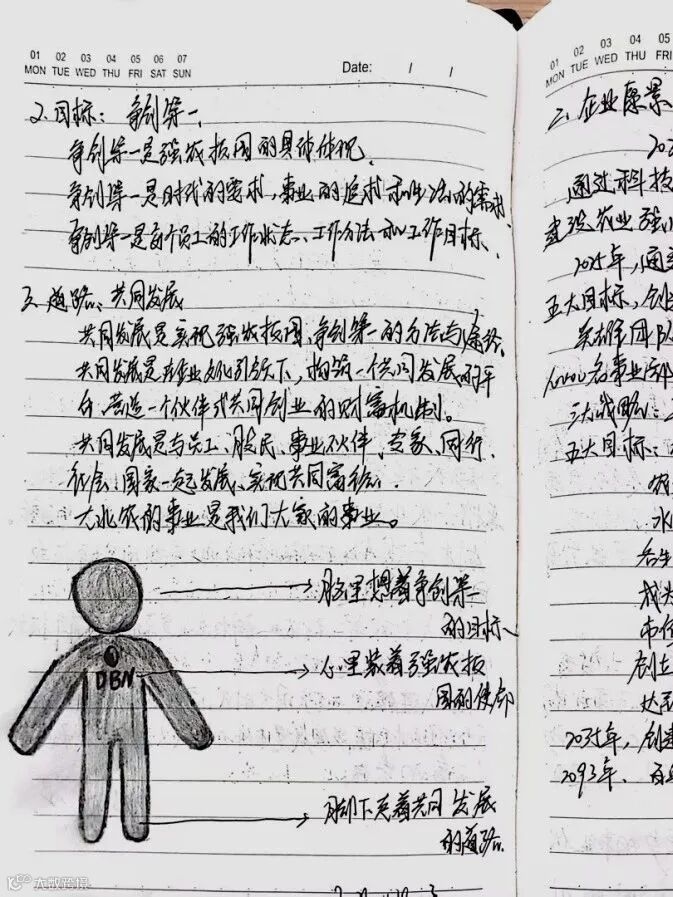 01 02 03 04 05 06 07
MON TUE WED THU FRI SAT SUN
Date: / /
2.目标：争创第一.
争创第一是强农报国的具体体现.
争创第一是时代的要求,事业的追求和生活的需求.
争创第一是每个员工的工作状态、工作方法和工作目标.
3.道路：共同发展
共同发展是实现强农报国、争创第一的方法与途径.
共同发展是在企业文化引领下，构筑一个共同发展的平
台,营造一个伙伴式共同创业的财富机制。
共同发展是与员工、股民、事业伙伴、专家、同行、
社会、国家一起发展、实现共同富裕.
大北农的事业是我们大家的事业。
脑里想着争创第一
的目标、
DBN
心里装着强农报
国的使命
脚下走着共同发展
的道路.
01 02 03 04 05
MON TUE WED THU FRI
二、企业愿景
通过科技
建设农业强
2025年，通
五大目标，创
三大战略：
五大目标：
农
水
养
成为
市值
创立
达
2035年，创建
2093年．百
大数跨境